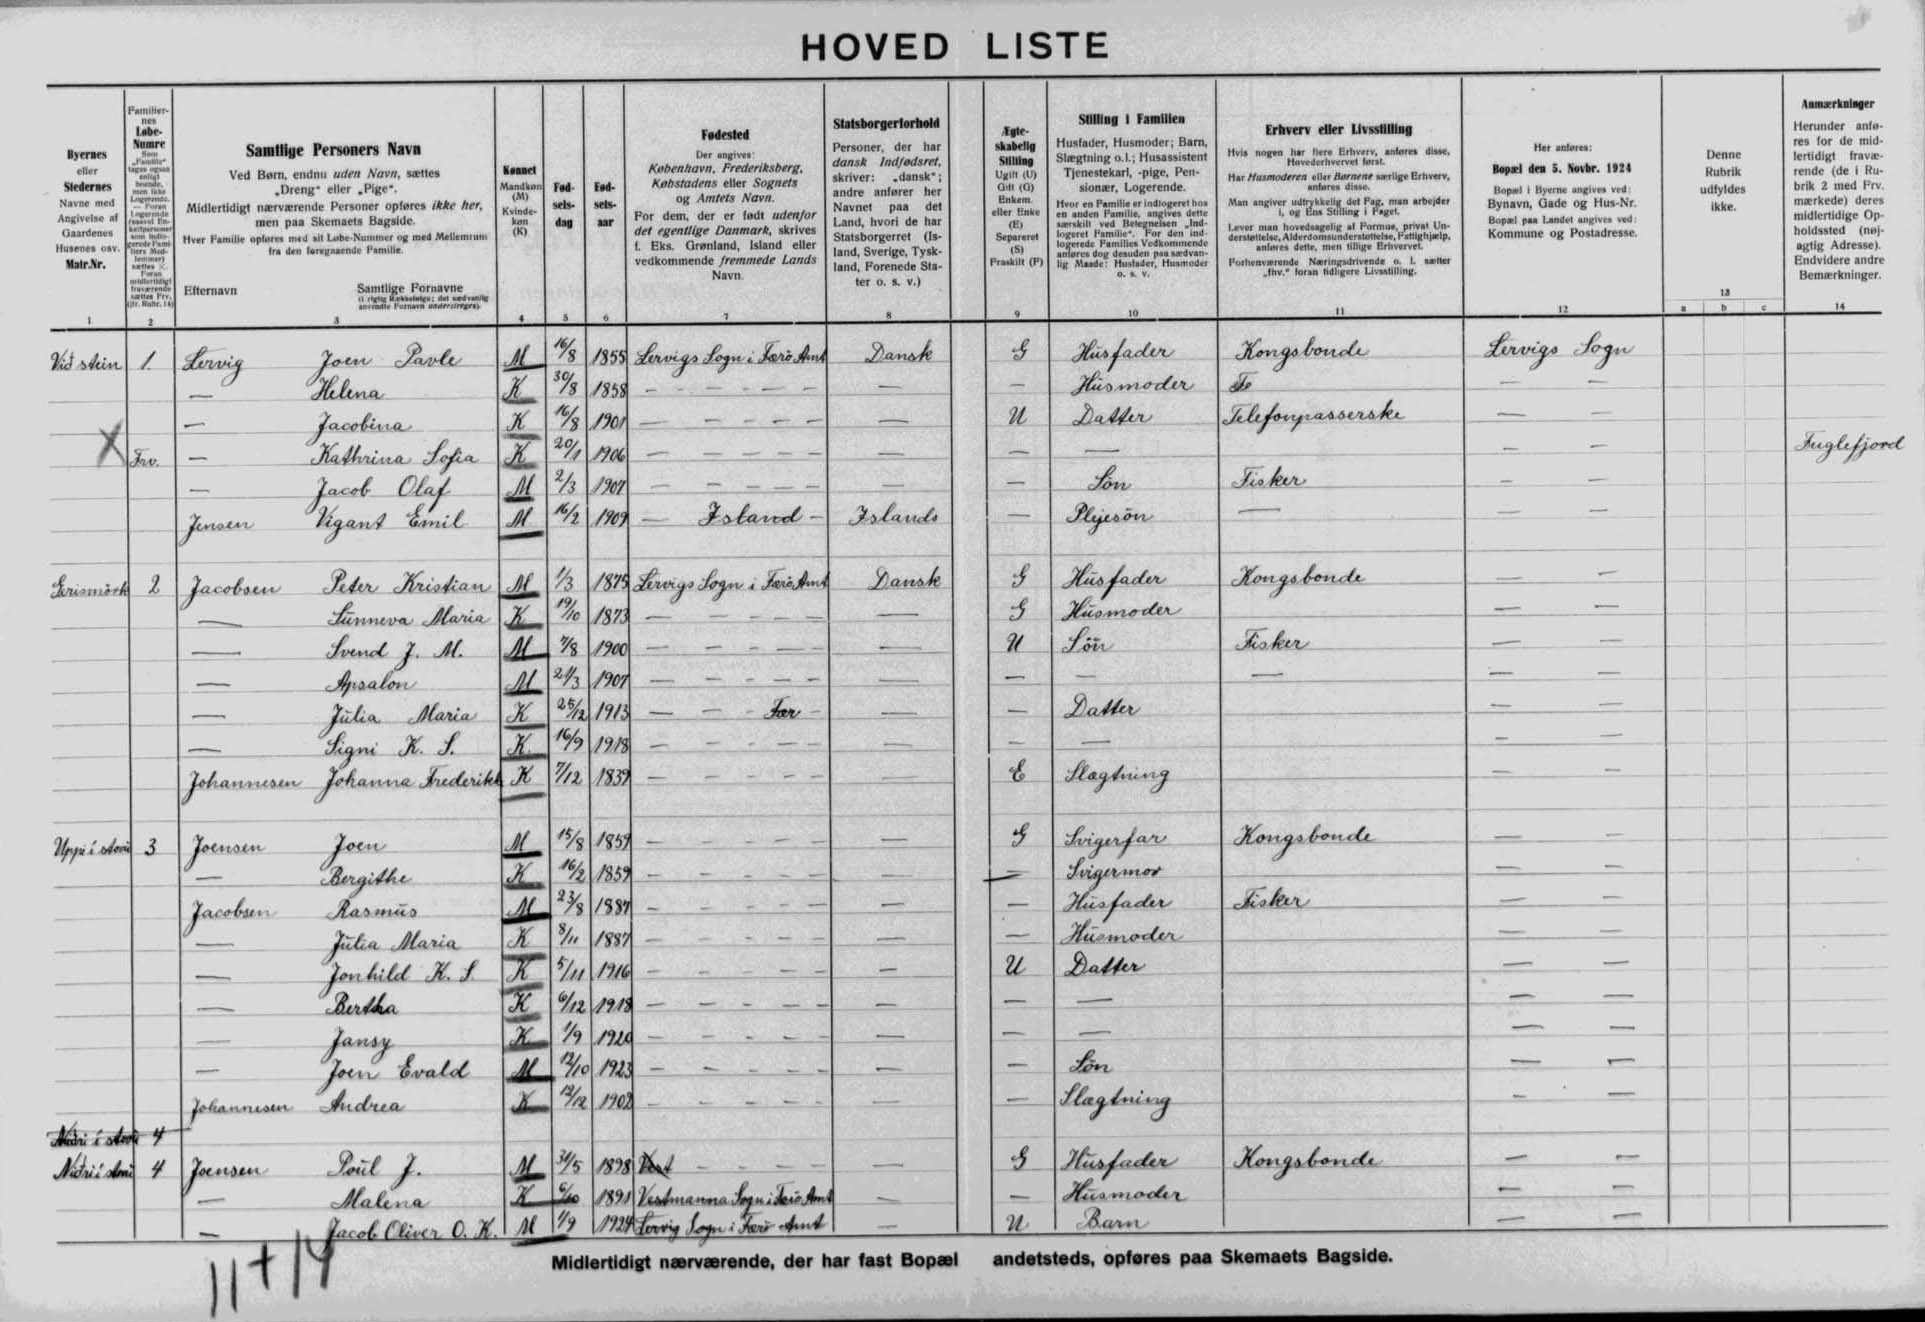 HOVED LISTE
Byernes
eller
Stedernes
Navne med
Angivelse af
Gaardenes
Husenes osv.
Matr.Nr.
1
Familier-
nes
Løbe-
Numre
2
Samtlige Personers Navn
Ved Børn, endnu uden Navn, sættes
„Dreng“ eller „Pige“.
Midlertidigt nærværende Personer opføres ikke her,
men paa Skemaets Bagside.
Hver Familie opføres med sit Løbe-Nummer og med Mellemrum
fra den foregaaende Familie.
Efternavn
Samtlige Fornavne
(i rigtig Rækkefølge; det sædvanlig
anvendte Fornavn understreges).
3
Kønnet
Mandkøn
(M)
Kvinde-
køn
(K)
4
Fød-
sels-
dag
5
Fød-
sels-
aar
6
Fødested
Der angives:
København, Frederiksberg,
Købstadens eller Sognets
og Amtets Navn.
For dem, der er født udenfor
det egentlige Danmark, skrives
f. Eks. Grønland, Island eller
vedkommende fremmede Lands
Navn.
7
Statsborgerforhold
Personer, der har
dansk Indfødsret,
skriver: „dansk“;
andre anfører her
Navnet paa det
Land, hvori de har
Statsborgerret (Is-
land, Sverige, Tysk-
land, Forenede Sta-
ter o. s. v.)
8
Ægte-
skabelig
Stilling
Ugift (U)
Gift (G)
Enkem.
eller Enke
(E)
Separeret
(S)
Fraskilt (F)
9
Stilling i Familien
Husfader, Husmoder; Barn,
Slægtning o.l.; Husassistent
Tjenestekarl, -pige, Pen-
sionær, Logerende.
Hvor en Familie er indlogeret hos
en anden Familie, angives dette
særskilt ved Betegnelsen „Ind-
logeret Familie“. For den ind-
logerede Families Vedkommende
anføres dog desuden paa sædvan-
lig Maade: Husfader, Husmoder
o. s. v.
10
Erhverv eller Livsstilling
Hvis nogen har flere Erhverv, anføres disse,
Hovederhvervet først.
Har Husmoderen eller Børnene særlige Erhverv,
anføres disse.
Man angiver udtrykkelig det Fag, man arbejder
i, og Ens Stilling i Faget.
Lever man hovedsagelig af Formue, privat Un-
derstøttelse, Alderdomsunderstøttelse, Fattighjælp,
anføres dette, men tillige Erhvervet.
Forhenværende Næringsdrivende o. l. sætter
„fhv.“ foran tidligere Livsstilling.
11
Her anføres:
Bopæl den 5. Novbr. 1924
Bopæl i Byerne angives ved:
Bynavn, Gade og Hus-Nr.
Bopæl paa Landet angives ved:
Kommune og Postadresse.
12
Denne
Rubrik
udfyldes
ikke.
13
a b c
Anmærkninger
Herunder anfø-
res for de mid-
lertidigt fravæ-
rende (de i Ru-
brik 2 med Frv.
mærkede) deres
midlertidige Op-
holdssted (nøj-
agtig Adresse).
Endvidere andre
Bemærkninger.
14
Við stein 1. Lervig Joen Pavle M 16/8 1855 Lervigs Sogn i Færö Amt Dansk G Husfader Kongsbonde Lervigs Sogn
— Helena K 30/8 1858 — — — — — — — Husmoder — —
— Jacobina K 16/8 1901 — — — — — — U Datter Telefonpasserske — —
X Frv. — Kathrina Sofia K 20/1 1906 — — — — — — — — — — Fuglefjord
— Jacob Olaf M 2/3 1907 — — — — — — — Sön Fisker — —
Jensen Vigant Emil M 16/2 1909 — Island — Islands — Plejesön — — —
Gerismörk 2 Jacobsen Peter Kristian M 1/3 1875 Lervigs Sogn i Færö Amt Dansk G Husfader Kongsbonde — —
— Sunneva Maria K 19/10 1873 — — — — — — G Husmoder — —
— Svend J. M. M 7/8 1900 — — — — — — U Sön Fisker — —
— Apsalon M 24/3 1907 — — — — — — — — — — —
— Julia Maria K 25/12 1913 — — Fær — — — Datter — —
— Signi K. S. K 16/9 1918 — — — — — — — — — —
Johannesen Johanna Frederikke K 7/12 1839 — — — — — — E Slægtning — —
Uppi í stovu 3 Joensen Joen M 15/8 1859 — — — — — — G Svigerfar Kongsbonde — —
— Bergithe K 16/2 1859 — — — — — — — Svigermor — —
Jacobsen Rasmus M 23/8 1887 — — — — — — — Husfader Fisker — —
— Julia Maria K 8/11 1887 — — — — — — — Husmoder — —
— Jonhild K. S. K 5/11 1916 — — — — — — U Datter — —
— Bertha K 6/12 1918 — — — — — — — — — —
— Jansy K 1/9 1920 — — — — — — — — — —
— Joen Evald M 12/10 1923 — — — — — — — Sön — —
Johannesen Andrea K 12/12 1902 — — — — — — — Slægtning — —
Niðri í stovu 4
Niðri í stovu 4 Joensen Poul J. M 31/5 1898 Vest — — — — — G Husfader Kongsbonde — —
— Malena K 6/10 1891 Vestmanna Sogn i Færö Amt — — Husmoder — —
— Jacob Oliver O. K. M 1/9 1924 Lervig Sogn i Færö Amt — U Barn — —
Midlertidigt nærværende, der har fast Bopæl andetsteds, opføres paa Skemaets Bagside.
11+14